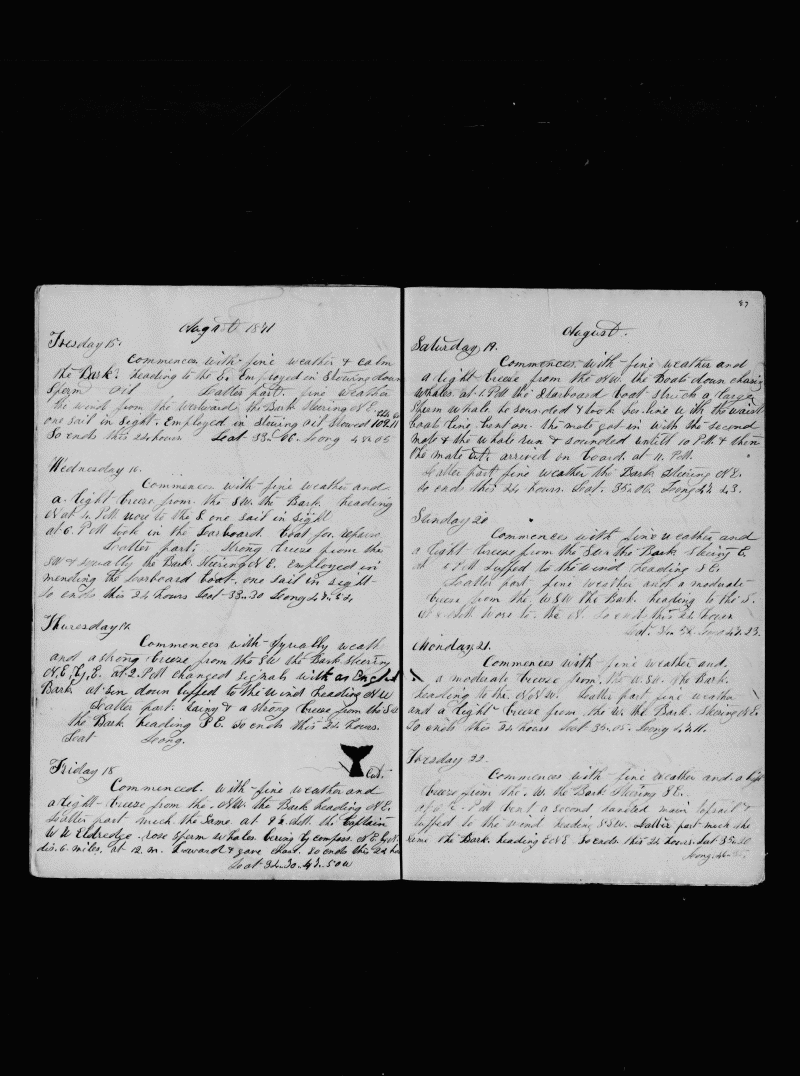 August 1871
Tuesday 15.
Commences with fine weather & calm
the Bark heading to the E. Employed in Stowing down
Sperm oil Latter part fine weather
the wind from the Westward the Bark Steering N E.
one sail in Sight. Employed in stowing oil stowed
So ends this 24 hours Lat 33 Long 48.05
Wednesday 16.
Commences with fine weather and
a light breeze from the SW. the Bark heading
at 4. P.M wore to the S one sail in Sight
at 6. P M took in the Larboard boat for repairs
Latter part, Strong breeze from the
SW & squally the Bark Steering N E. Employed in
mending the Larboard boat. one sail in sight
So ends this 24 hours Lat 33.30 Long 47.54
Thuresday 17.
Commences with squally weath
and a strong breeze from the SW the Bark Steering
N.E. by E. at 2. P M changed signals with an English
Bark. at sun down luffed to the wind heading N W
Latter part. rainy & a strong breeze from the S
the Bark heading S E. So ends this 24 hours.
Lat Long.
Friday 18 Cut.
Commenced. with fine weather and
a light breeze from the NW. the Bark heading N E.
Latter part much the Same. at the Captain
W W Eldredge rose Sperm Whales bering by compass N E by N.
dis. 6. miles, at 12. m. lowered & gave chase. So ends this 24 hou
Lat 34.30 47.50 W
87
August.
Saturday 19.
Commences with fine weather and
a light breeze from the NW. the Boats down chasing
whales at 1. P M the Starboard boat struck a large
Sperm whale, he sounded & took his line with the waist
boats line, bent on. the mate got in with the second
mate & the whale run & sounded untill 10 P M. & then
the mate cut. arrived on board. at 11. P M.
Latter part fine weather the Bark Steering N E.
so ends this 24 hours. Lat. 35.06. Long 47.43.
Sunday 20
Commences with fine weather and
a light breeze from the SW. the Bark Steering E.
at P M Luffed to the wind heading S E.
Latter part fine weather and a moderate
breeze from the W S W the Bark heading to the S.
wore to the N. So ends this 24 hours
Lat. Long 47.23.
Monday 21.
Commences with fine weather and
a moderate breeze from. the W. SW. the Bark
heading to the N NW. Latter part fine weather
and a light breeze from the W. the Bark Steering N E.
So ends this 24 hours Lat Long
Tuesday 22.
Commences with fine weather and a light
breeze from the W. the Bark Steering S E.
at P M bent a second handed main topsail &
luffed to the wind heading S S W. Latter part much the
same the Bark. heading E N E So ends this 24 hours. Lat
Long.